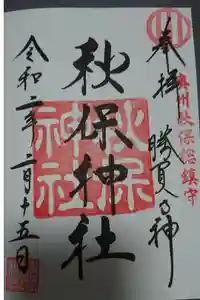 奉拝 勝負の神
奥州秋保総鎮守
秋保神社
秋保神社
令和二年二月十五日